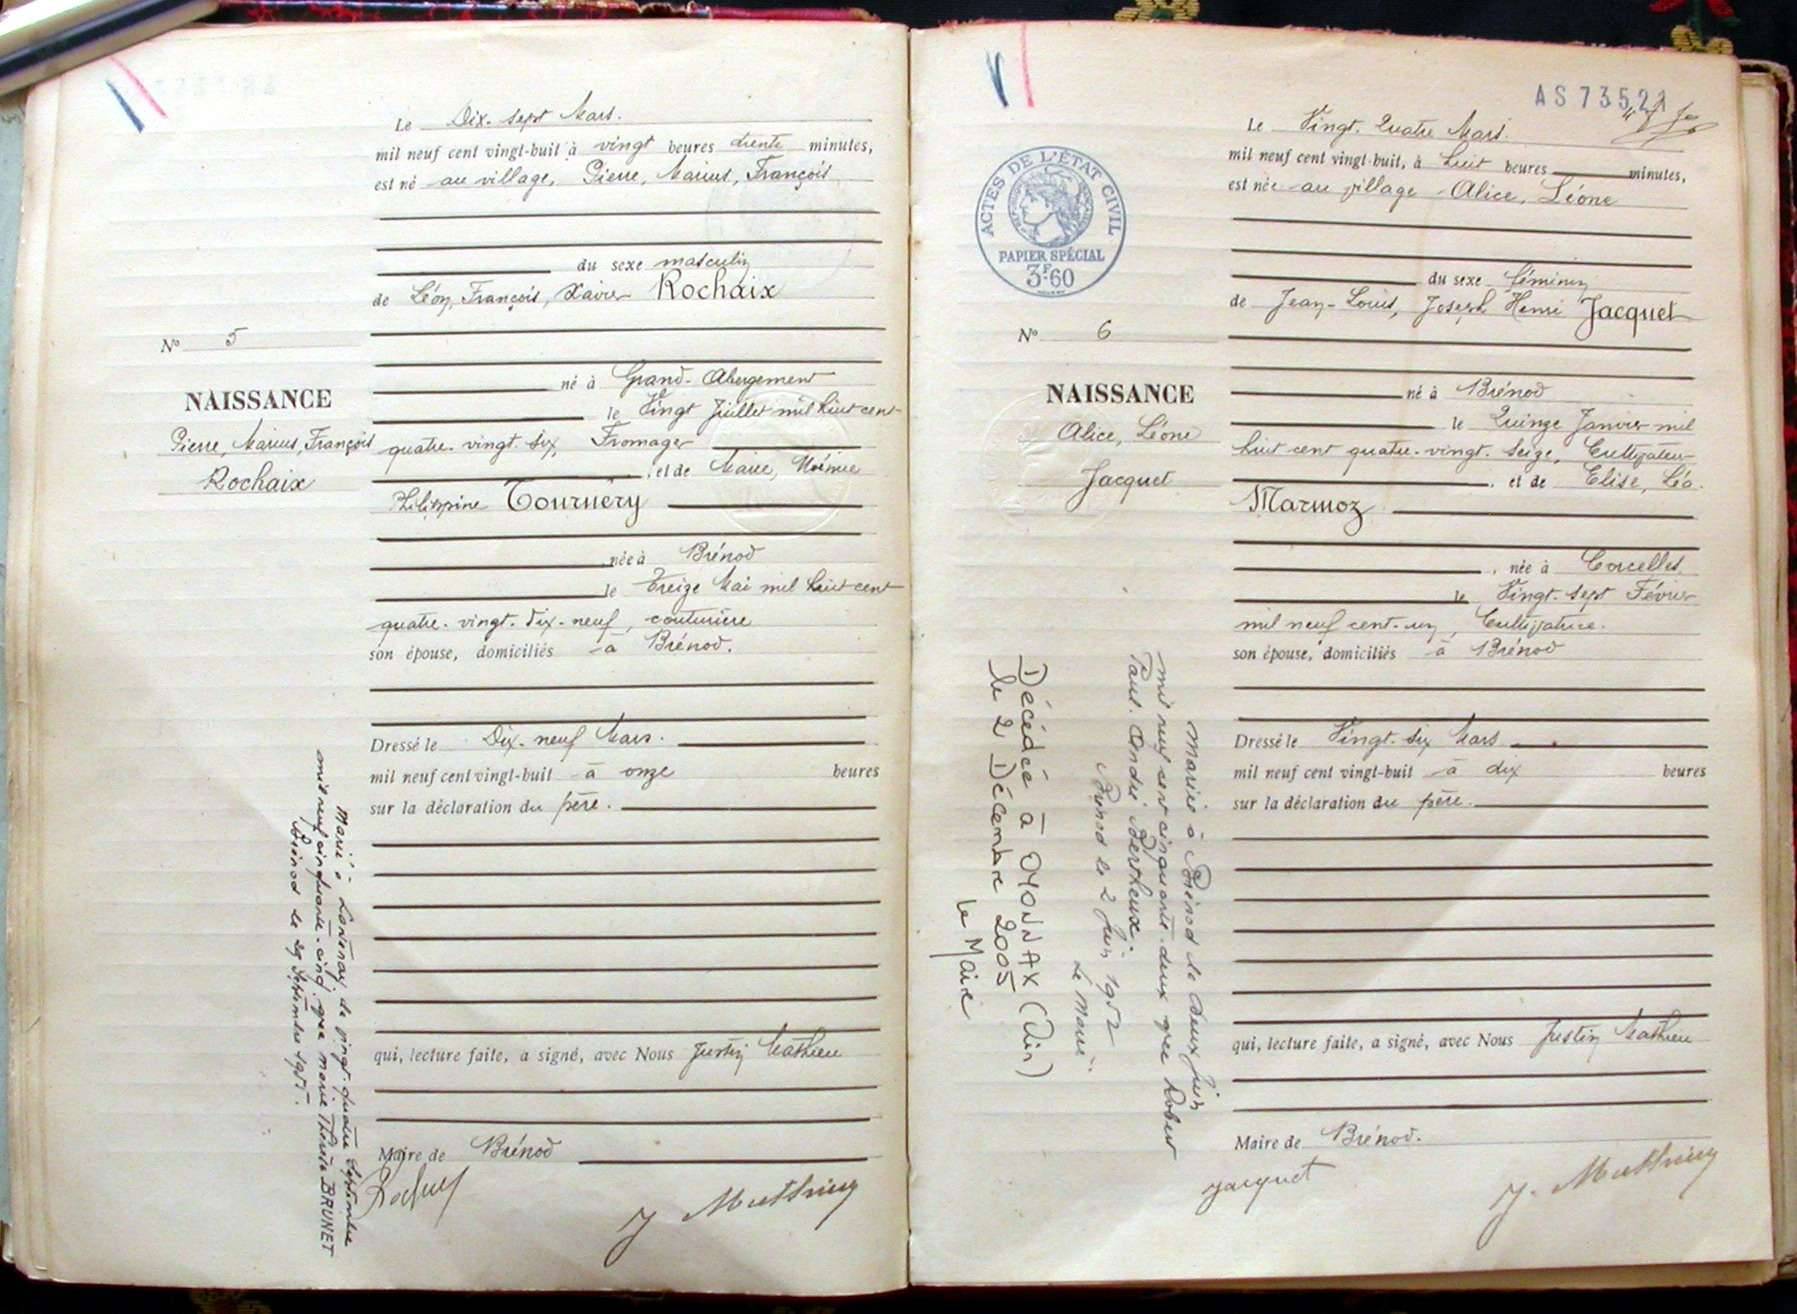 Le Dix-sept Mars.
mil neuf cent vingt-huit à vingt heures trente minutes,
est né au village, Pierre, Marius, François
du sexe masculin
de Léon, François, Xavier Rochaix
N° 5
né à Grand-Abergement
NAISSANCE
le Vingt Juillet mil huit cent
Pierre, Marius, François
quatre-vingt-six, Fromager
, et de Marie, Noémie
Rochaix
Philippine Tournery
née à Brénod
le Treize Mai mil huit cent
quatre-vingt-dix-neuf, couturière
son épouse, domiciliés à Brénod.
Dressé le Dix-neuf Mars.
mil neuf cent vingt-huit à onze heures
sur la déclaration du père.
qui, lecture faite, a signé, avec Nous Justin Mathieu
Maire de Brénod
J Mathieu
Marié à Lantenay le vingt-quatre Septembre
mil neuf cinquante-cinq avec Marie Thérèse BRUNET
Brénod le 29 Septembre 1955.
AS 73521
Le Vingt-Quatre Mars.
mil neuf cent vingt-huit, à huit heures minutes,
est née au village Alice, Léone
ACTES DE L'ÉTAT CIVIL
PAPIER SPÉCIAL
3F.60
du sexe féminin
de Jean-Louis, Joseph Henri Jacquet
N° 6
né à Brénod
NAISSANCE
le Quinze Janvier mil
Alice, Léone
huit cent quatre-vingt-seize, Cultivateur
Jacquet
, et de Elise, Léa
Marmoz
, née à Corcelles.
le Vingt-sept Février
mil neuf cent-un, Cultivatrice.
son épouse, domiciliés à Brénod
Dressé le Vingt-six Mars
mil neuf cent vingt-huit à dix heures
sur la déclaration du père.
qui, lecture faite, a signé, avec Nous Justin Mathieu
Maire de Brénod.
Jacquet
J. Mathieu
Mariée à Brénod le deux Juin
mil neuf cent cinquante-deux avec Robert
Paul André Bertheux.
Brénod le 2 Juin 1952
Le Maire.
Décédée à OYONNAX (Ain)
le 2 Décembre 2005
Le Maire